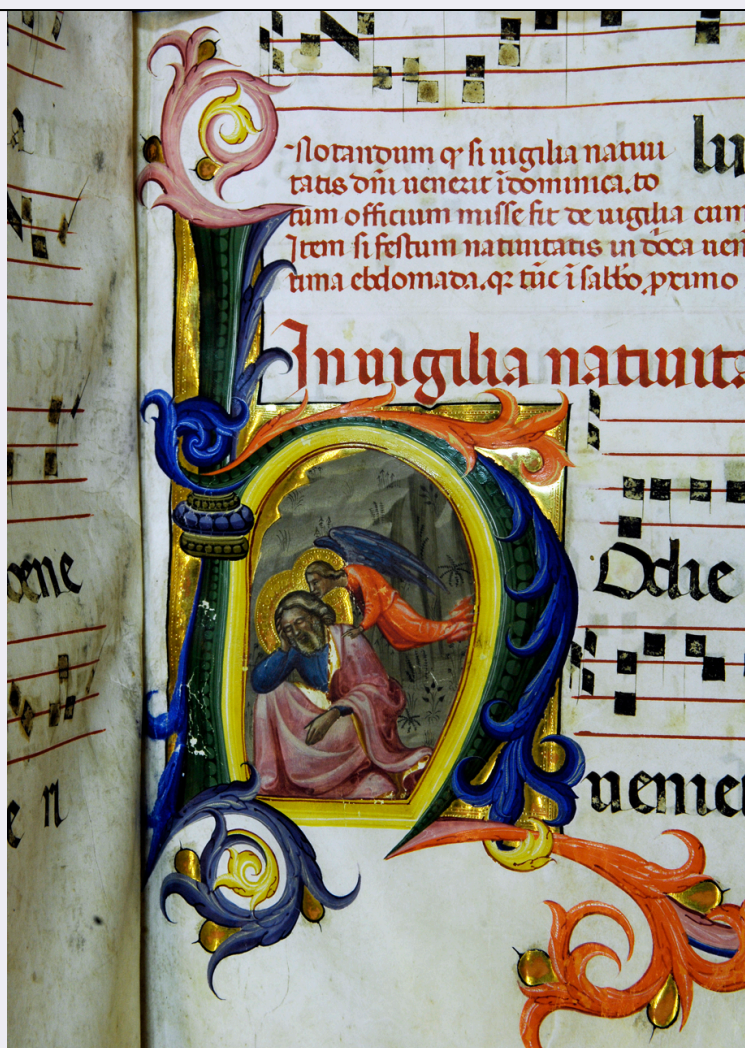 lu
Notandum ꝙ si uigilia natiui
tatis dñi uenerit ī dominica. to
tum officium misse fit de uigilia cum
Item si festum natiuitatis in
tima ebdomada. qꝛ tūc ī sabbo. primo
In uigilia natiuita
Hodie
uenie